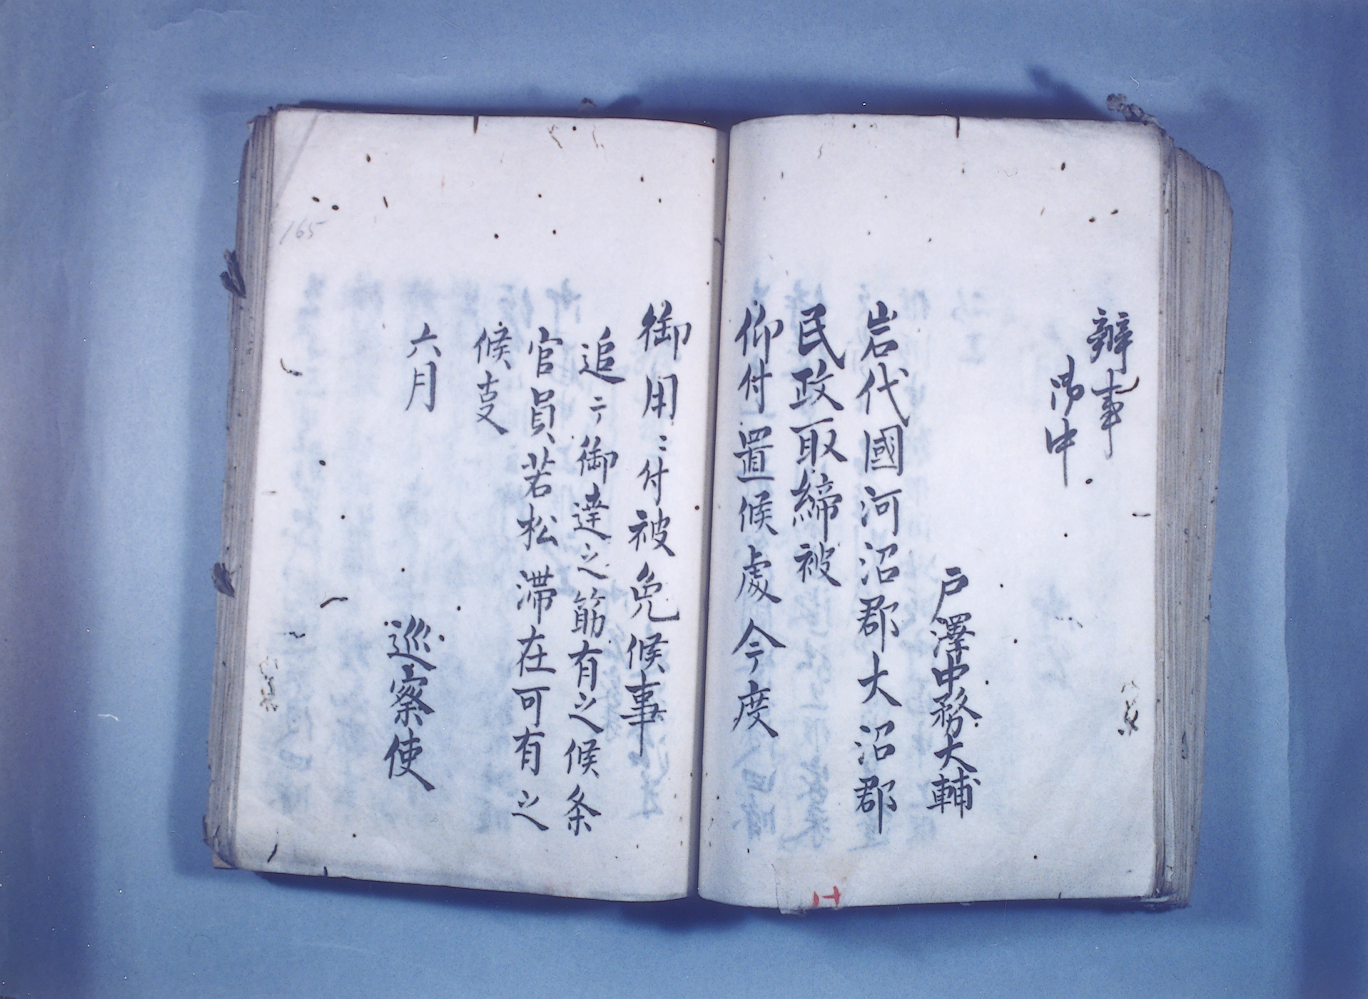 辦事
御中
戸澤中務大輔
岩代國河沼郡大沼郡
民政取締被
仰付置候處今度
御用ニ付被免候事
追テ御達之筋有之候条
官員若松滞在可有之
候事
六月
巡察使
165